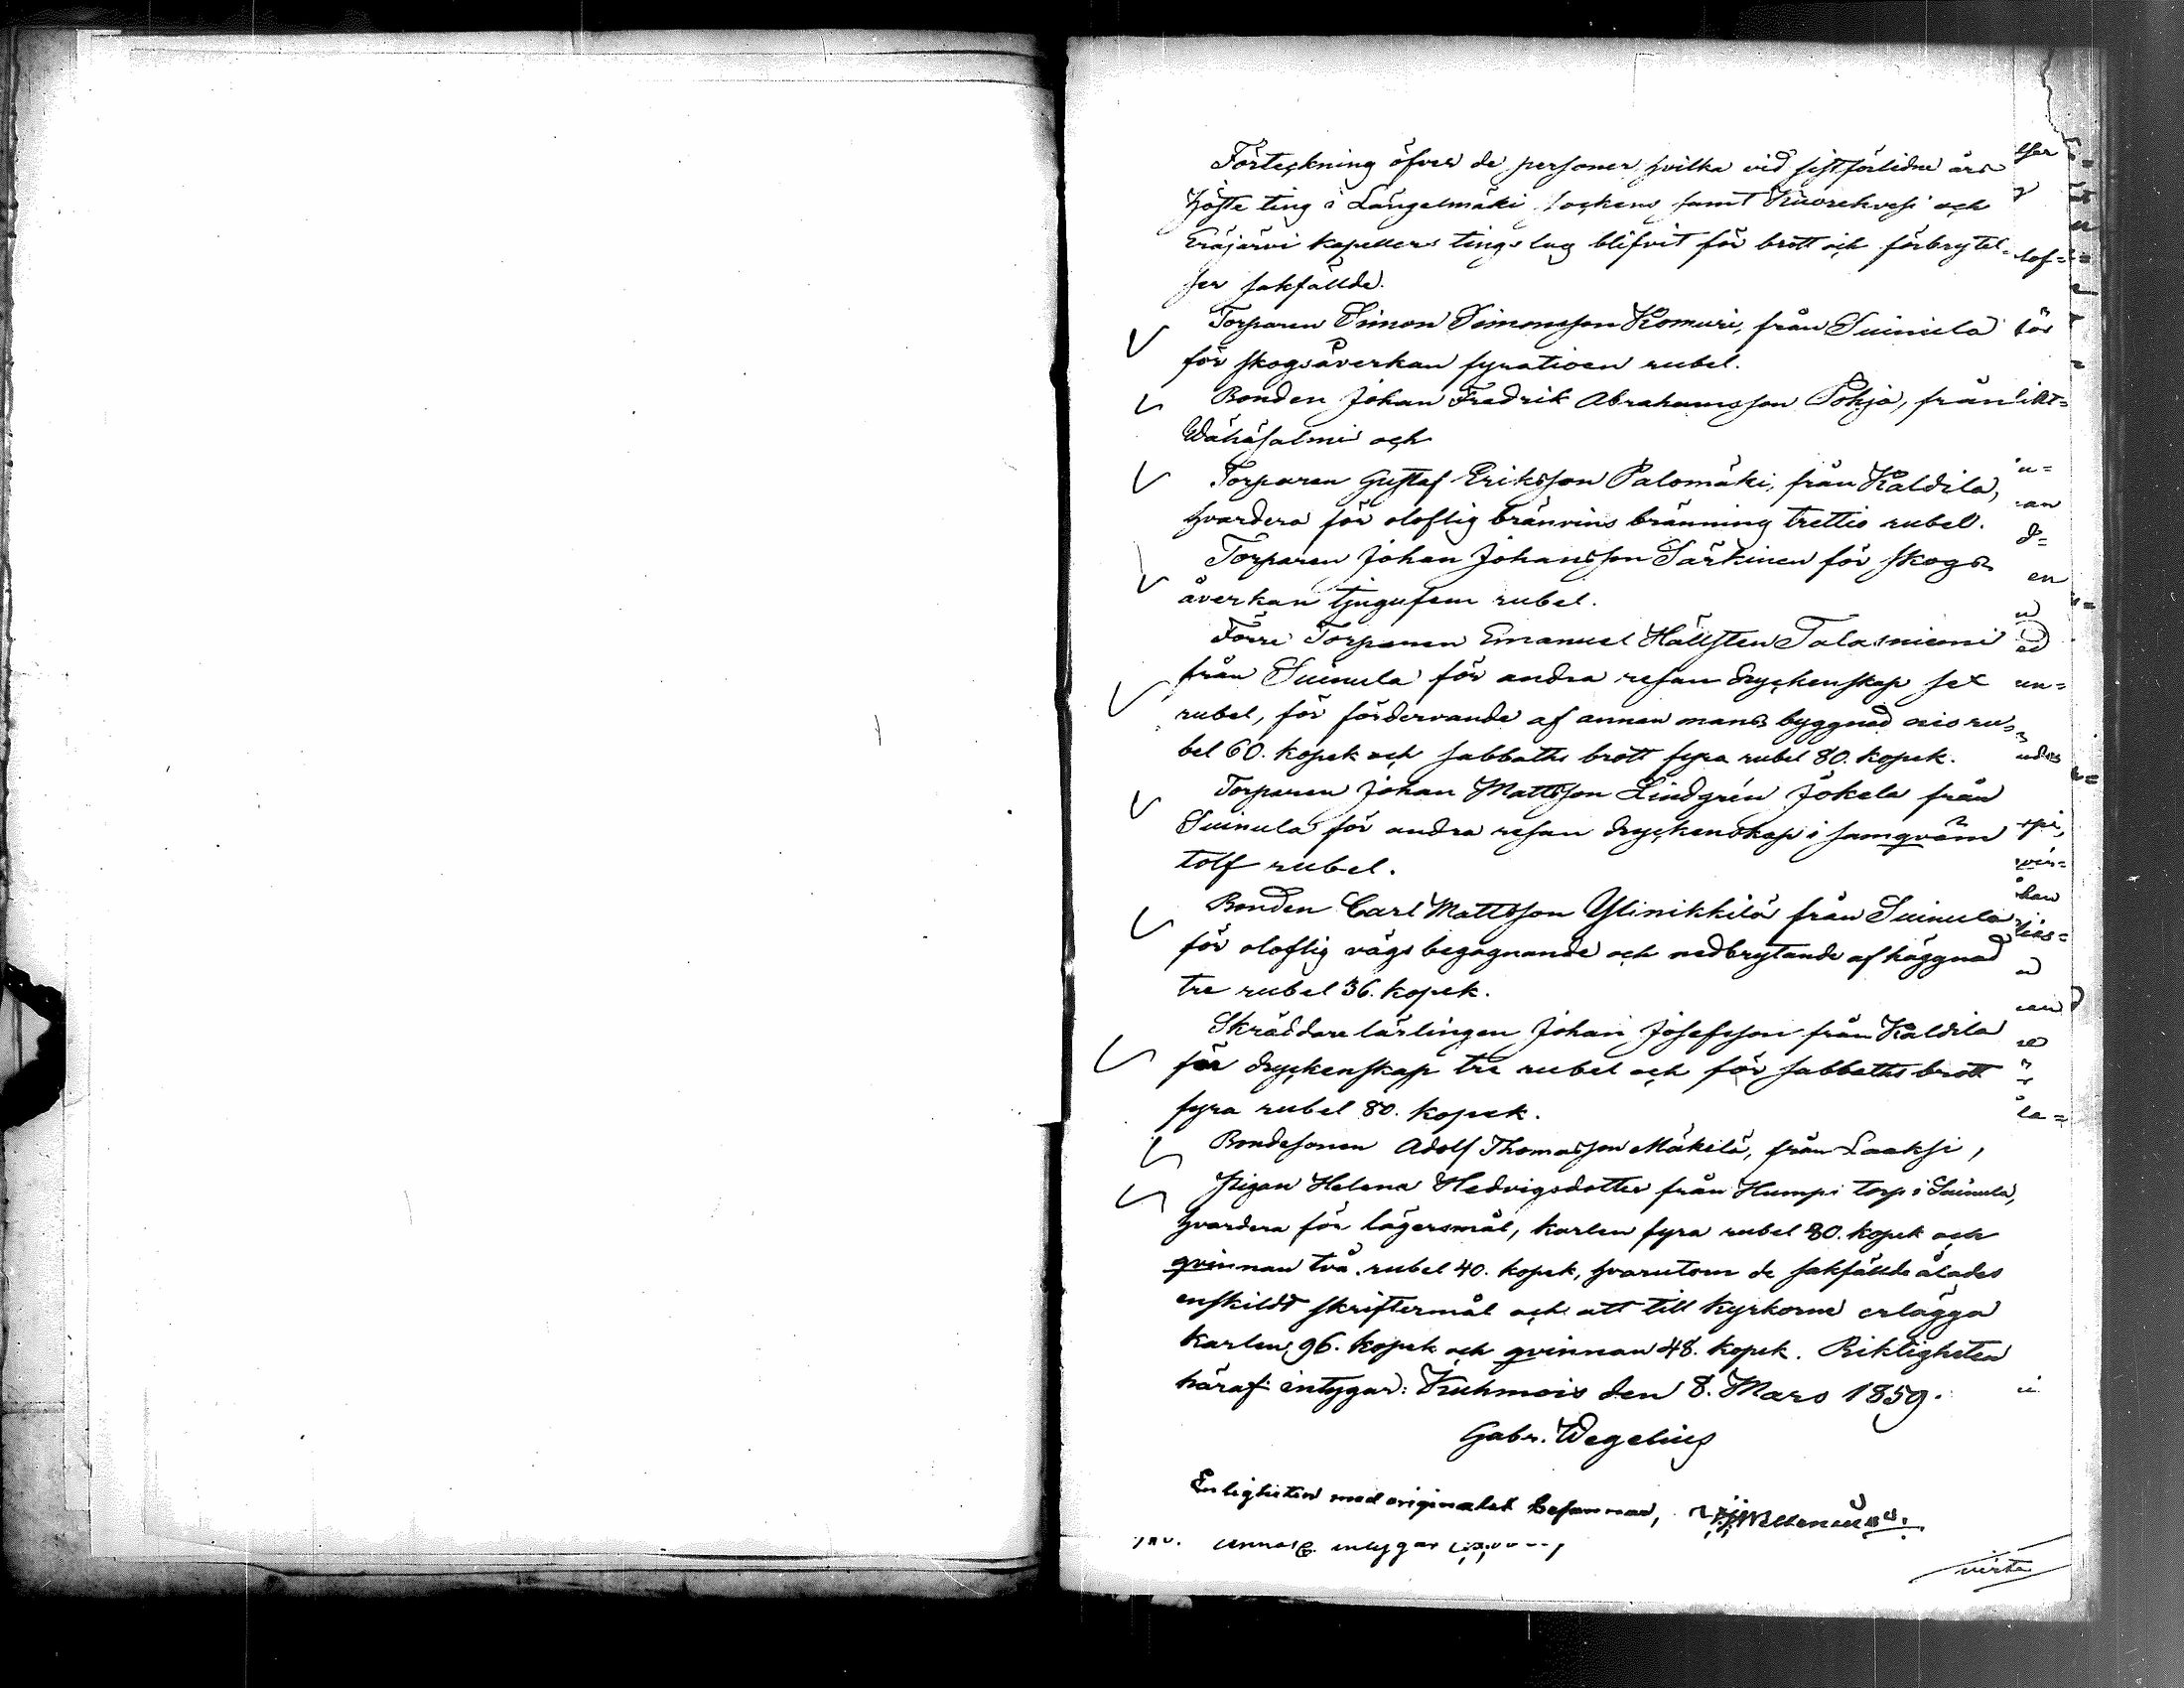 Förteckning öfver de personer hvilka vid sistförlidne års
Höste ting i Längelmäki sockens samt Kuorehvesi och
Eräjärvi kapellers tingslag blifvit för brott och förbrytel-
ser sakfällde.
Torparen Simon Simonsson Komuri, från Suinula
för skogsåverkan fyratioen rubel.
Bonden Johan Fredrik Abrahamsson Pohja, från
Wähäsalmi och
Torparen Gustaf Eriksson Palomäki, från Kaldila,
hvardera för oloflig bränvins bränning trettio rubel.
Torparen Johan Johansson Särkinen för skogs
åverkan tjugufem rubel.
Förre Torparen Emanuel Hällsten Talasniemi
från Suinula för andra resan dryckenskap sex
rubel, för fördervande af annan mans byggnad nio ru-
bel 60. kopek och sabbaths brott fyra rubel 80. kopek.
Torparen Johan Mattsson Lindgrén Jokela från
Suinula för andra resan dryckenskap i samqväm
tolf rubel.
Bonden Carl Mattsson Ylinikkilä från Suinula
för oloflig vägs begagnande och nedbrytande af häggnad
tre rubel 36. kopek.
Skräddare lärlingen Johan Josefsson från Kaldila
för dryckenskap tre rubel och för sabbaths brott
fyra rubel 80. kopek.
Bondesonen Adolf Thomasson Mäkelä, från Laaksi,
Pigan Helena Hedvigsdotter från Humpi torp i Suinula,
hvardera för lägersmål, karlen fyra rubel 80. kopek och
qvinnan två rubel 40. kopek, hvarutom de sakfällde ålades
enskildt skriftermål och att till kyrkorne erlägga
karlen 96. kopek och qvinnan 48. kopek. Riktigheten
häraf intygar: Kuhmois den 8. Mars 1859.
Gabr. Wegelius
Enligheten med originalet befunnen,
intygar